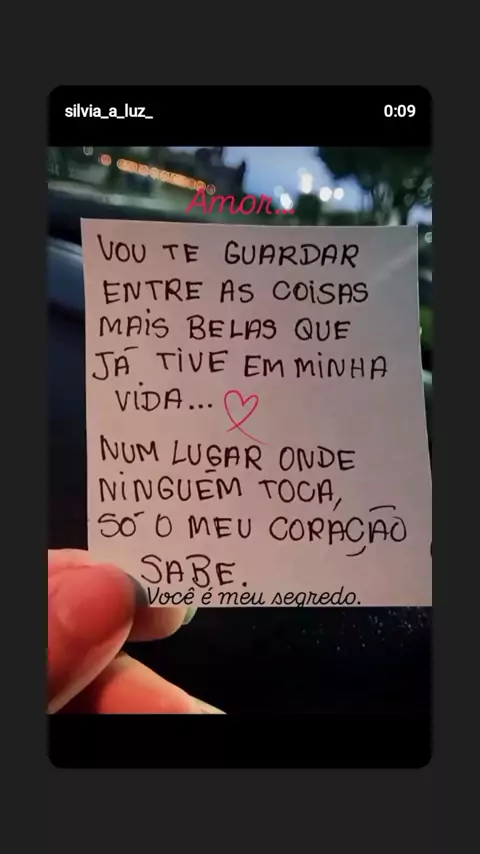 silvia_a_luz_ 0:09
Amor...
VOU TE GUARDAR
ENTRE AS COISAS
MAIS BELAS QUE
JÁ TIVE EM MINHA
VIDA...
NUM LUGAR ONDE
NINGUÉM TOCA,
SÓ O MEU CORAÇÃO
SABE.
Você é meu segredo.